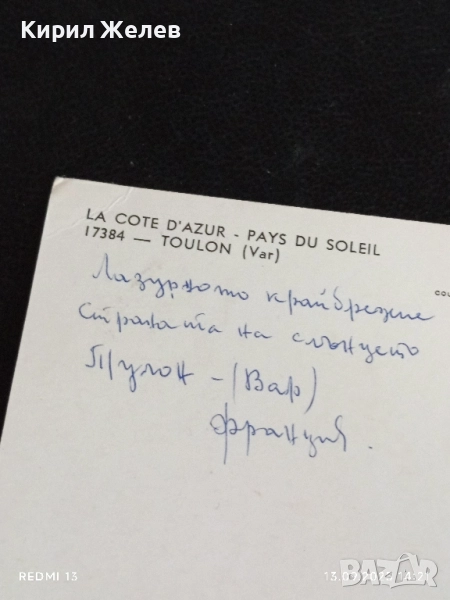 Кирил Желев
LA COTE D'AZUR - PAYS DU SOLEIL
17384 — TOULON (Var)
Лазурното крайбрежие
Страната на слънцето
Тулон - (Вар)
Франция.
REDMI 13
BAZAR